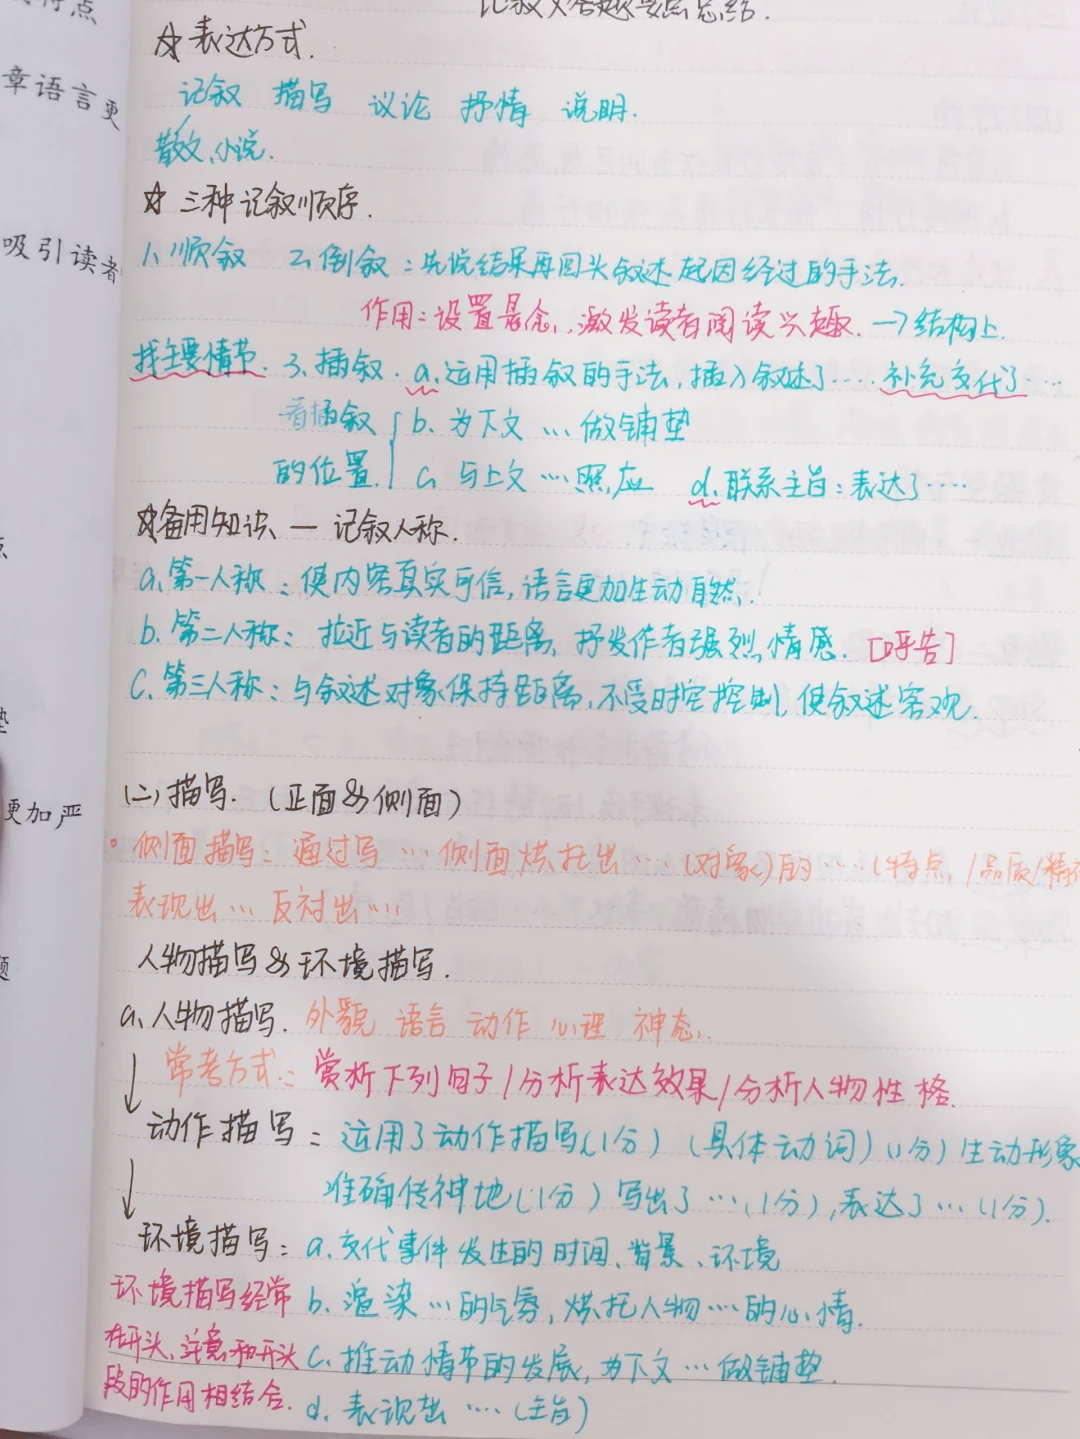 记叙文答题要点总结.
特点
☆ 表达方式.
章语言更
记叙 描写 议论 抒情 说明.
散文、小说.
☆ 三种记叙顺序.
吸引读者
1、顺叙 2、倒叙：先说结果再回头叙述起因经过的手法.
作用：设置悬念,激发读者阅读兴趣. →结构上.
找主要情节. 3、插叙. a.运用插叙的手法,插入叙述了……补充交代了……
看插叙 b. 为下文…做铺垫
的位置. c、与上文…照应 d.联系主旨：表达了……
☆备用知识 — 记叙人称.
a.第一人称：使内容真实可信,语言更加生动自然.
b. 第二人称：拉近与读者的距离,抒发作者强烈情感. [呼告]
C. 第三人称：与叙述对象保持距离,不受时空控制,使叙述客观.
(二)描写. (正面&侧面)
更加严
。侧面描写：通过写…侧面烘托出…(对象)的……(特点/品质/精
表现出…反衬出…
人物描写&环境描写.
题
a.人物描写. 外貌 语言 动作 心理 神态.
常考方式：赏析下列句子/分析表达效果/分析人物性格.
↓
动作描写：运用了动作描写(1分) (具体动词)(1分)生动形象
准确传神地(1分)写出了…(1分),表达了…(1分).
↓
环境描写：a.交代事件发生的时间、背景、环境
环境描写经常 b. 渲染…的气氛,烘托人物…的心情.
在开头、注意和开头 C. 推动情节的发展,为下文…做铺垫.
段的作用相结合. d. 表现出……(主旨)